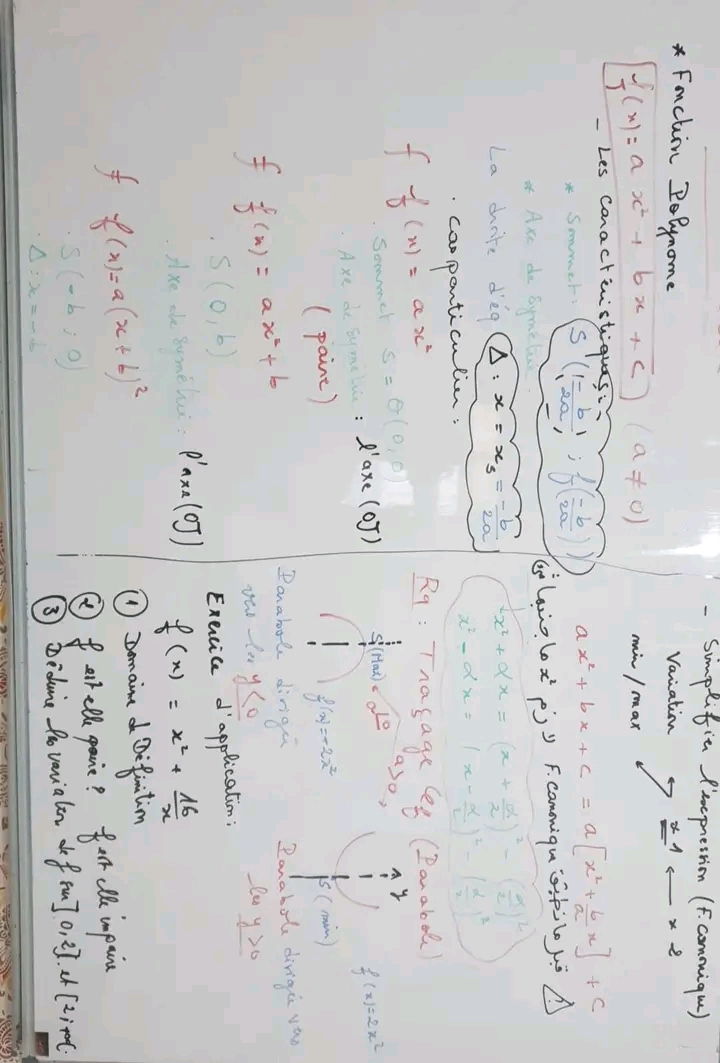 * Fonction Polynome
f(x) = a x² + bx + c (a ≠ 0)
- Les caractéristiques :
* Sommet : S (-b/2a ; f(-b/2a))
* Axe de symétrie :
La droite d'éq Δ : x = xs = -b/2a
. cas particulier :
f f(x) = ax²
. Sommet S = O(0,0)
. Axe de symétrie : l'axe (OJ)
(paire)
f f(x) = ax² + b
. S(0,b)
. Axe de symétrie : l'axe (OJ)
f f(x) = a(x+b)²
. S(-b ; 0)
. Δ : x = -b
- Simplifier l'expression (F.canonique)
Variation
min/max
x1 ← x2
ax² + bx + c = a[x² + b/a x] + c
⚠ قبل ما نطبق F.canonique لازم x²
x² + αx = (x + α/2)² - (α/2)²
x² - αx = (x - α/2)² - (α/2)²
Rq : Traçage Cf (Parabole)
a>0,
S(Max)
f(x) = -2x²
Parabole dirigée
vers les y<0
y
S(min)
f(x) = 2x²
Parabole dirigée vers
les y>0
Exercice d'application :
f(x) = x² + 16/x
① Domaine d Définition
② f est elle paire? f est elle impaire
③ Déduire les variation de f sur ]0,2] et [2;+∞[